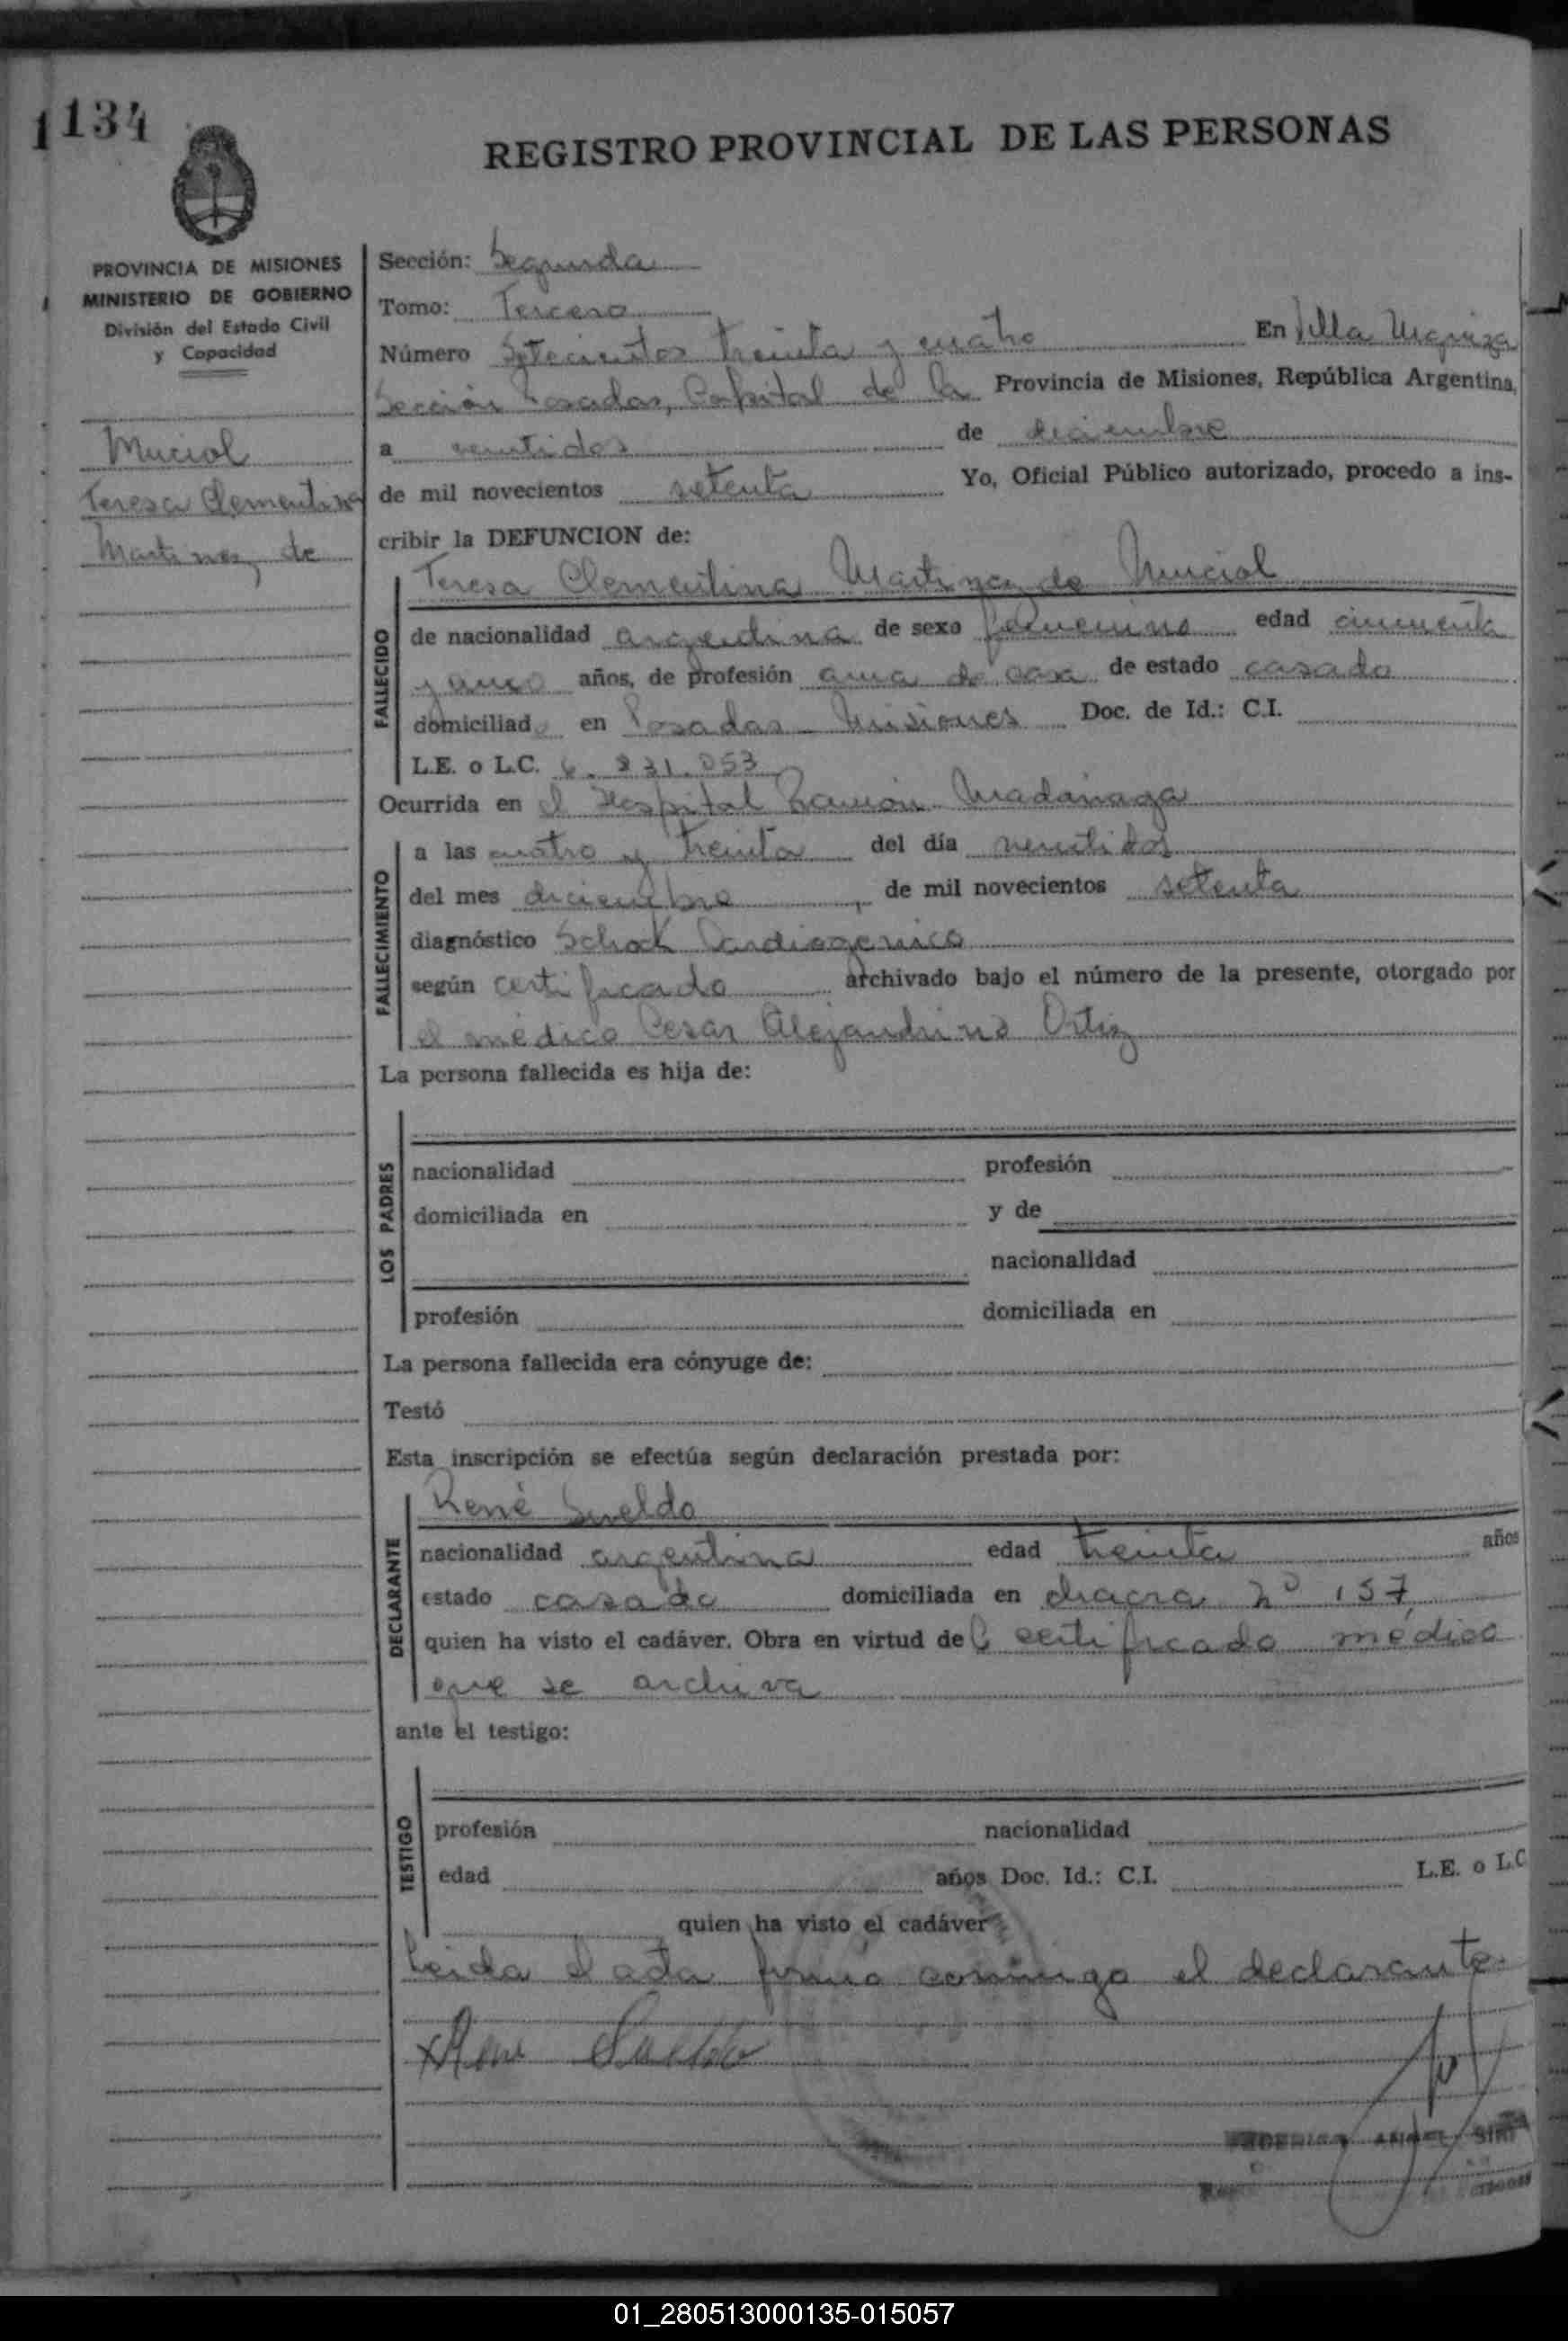 1134
REGISTRO PROVINCIAL DE LAS PERSONAS
PROVINCIA DE MISIONES
MINISTERIO DE GOBIERNO
División del Estado Civil
y Capacidad
Muciol
Teresa Clementina
Martinez de
Sección: Segunda
Tomo: Tercero
Número Setecientos treinta y cuatro En Villa Urquiza
Sección Posadas, Capital de la Provincia de Misiones, República Argentina,
a veintidos de diciembre
de mil novecientos setenta Yo, Oficial Público autorizado, procedo a ins-
cribir la DEFUNCION de:
Teresa Clementina Martinez de Muciol
FALLECIDO
de nacionalidad argentina de sexo femenino edad cincuenta
y años, de profesión ama de casa de estado casado
domiciliad en Posadas - Misiones Doc. de Id.: C.I.
L.E. o L.C. 6.831.053
Ocurrida en el Hospital Ramón Madariaga
FALLECIMIENTO
a las cuatro y treinta del día veintidos
del mes diciembre, de mil novecientos setenta
diagnóstico Schock Cardiogenico
según certificado archivado bajo el número de la presente, otorgado por
el médico Cesar Alejandrino Ortiz
La persona fallecida es hija de:
LOS PADRES
nacionalidad profesión
domiciliada en y de
nacionalidad
profesión domiciliada en
La persona fallecida era cónyuge de:
Testó
Esta inscripción se efectúa según declaración prestada por:
René Sueldo
DECLARANTE
nacionalidad argentina edad treinta años
estado casado domiciliada en chacra Nº 157
quien ha visto el cadáver. Obra en virtud del certificado médico
que se archiva
ante el testigo:
TESTIGO
profesión nacionalidad
edad años Doc. Id.: C.I. L.E. o L.C
quien ha visto el cadáver
Leida el acta firma conmigo el declarante.
Rene Sueldo
01_280513000135-015057